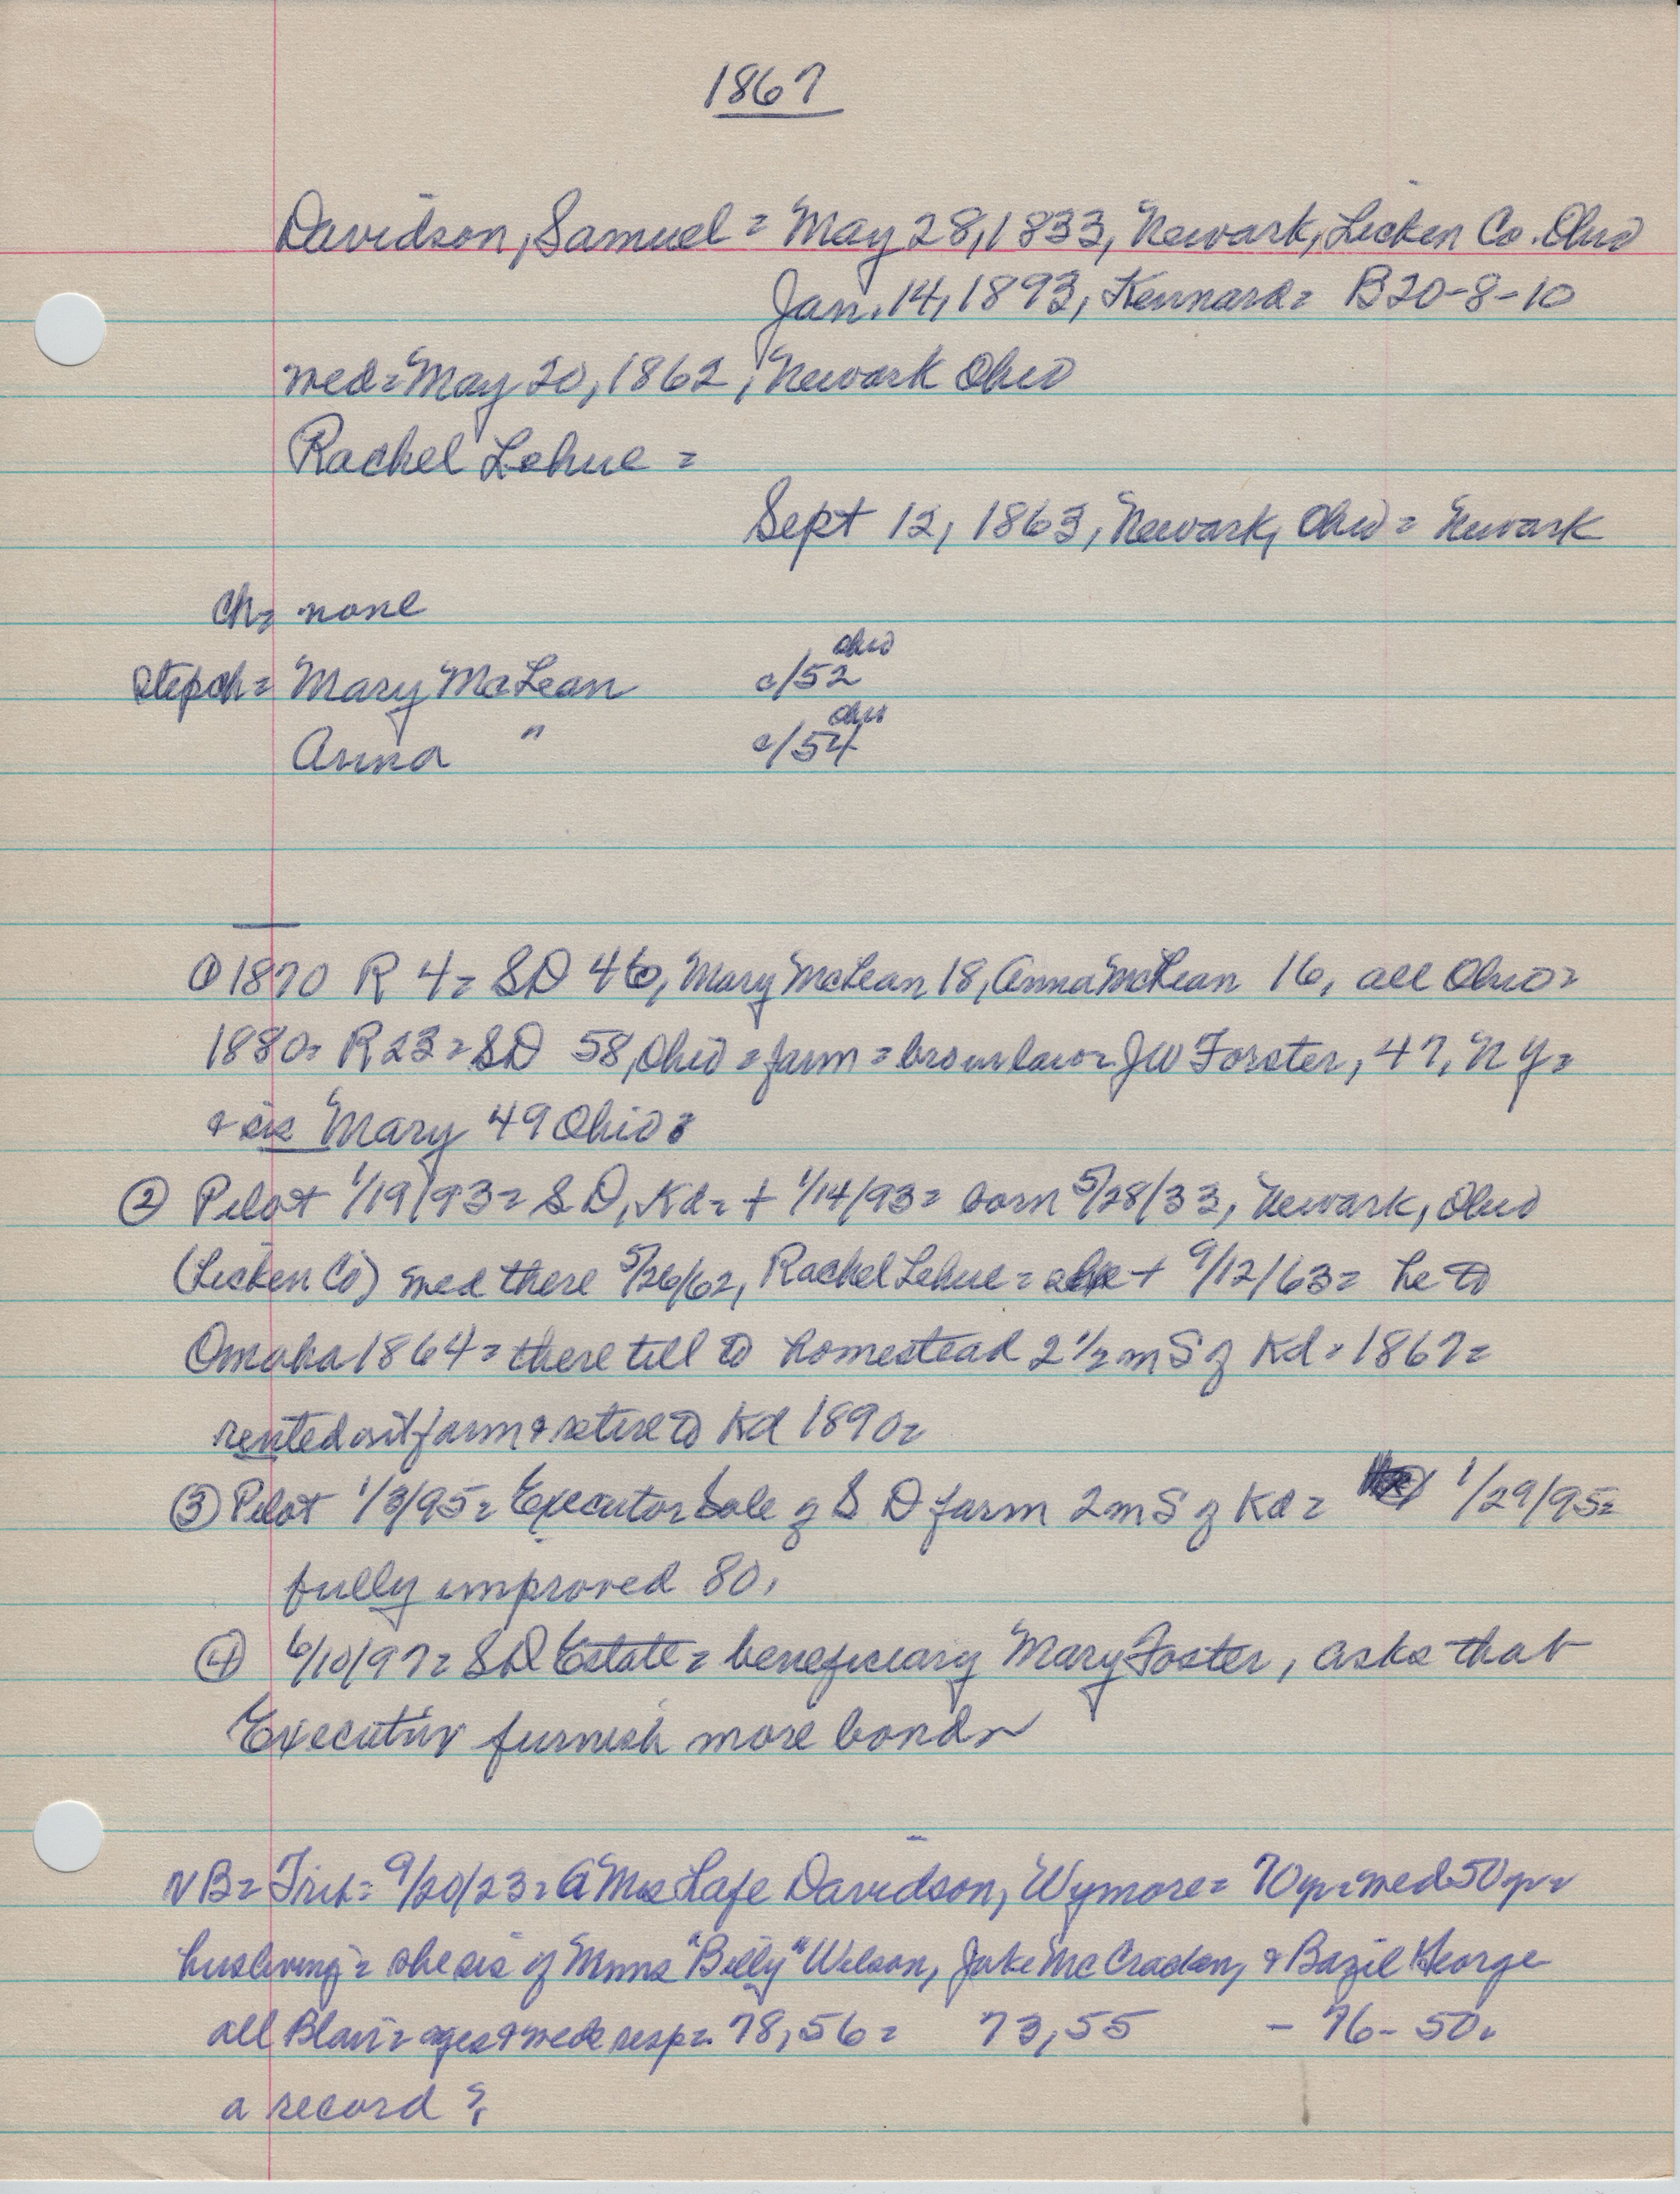 1867
Davidson, Samuel = May 28, 1833, Newark, Licken Co. Ohio
Jan. 14, 1893, Kennard = B20-8-10
med = May 20, 1862, Newark Ohio
Rachel Lehue =
Sept 12, 1863, Newark, Ohio = Newark
ch = none
Stepch = Mary McLean c/52 Ohio
Anna " c/54 Ohio
① 1870 R 4 = SD 40, Mary McLean 18, Anna McLean 16, all Ohio =
1880 = R 23 = SD 58, Ohio = farm = broinlaw = JW Forster, 47, NY =
& sis Mary 49 Ohio =
② Pilot 1/19/93 = S D, Kd = + 1/14/93 = born 5/28/33, Newark, Ohio
(Licken Co) med there 5/26/62, Rachel Lehue = she + 9/12/63 = he to
Omaha 1864 = there till to homestead 2 1/2 m S of Kd = 1867 =
rented out farm & retire to Kd 1890 =
③ Pilot 1/3/95 = Executor Sale of S D farm 2 m S of Kd = 1/29/95 =
fully improved 80.
④ 6/10/97 = SD Estate = beneficiary Mary Foster, asks that
Executiv furnish more bond
NB = Trib = 9/20/23 = A Mrs Lafe Davidson, Wymore = 70 yr = med 50 yr =
hus living = she sis of Mmns "Billy" Wilson, Jake McCracken, & Bazil George
all Blair = ages & meds resp = 78, 56 = 73, 55 - 76 - 50.
a record ?